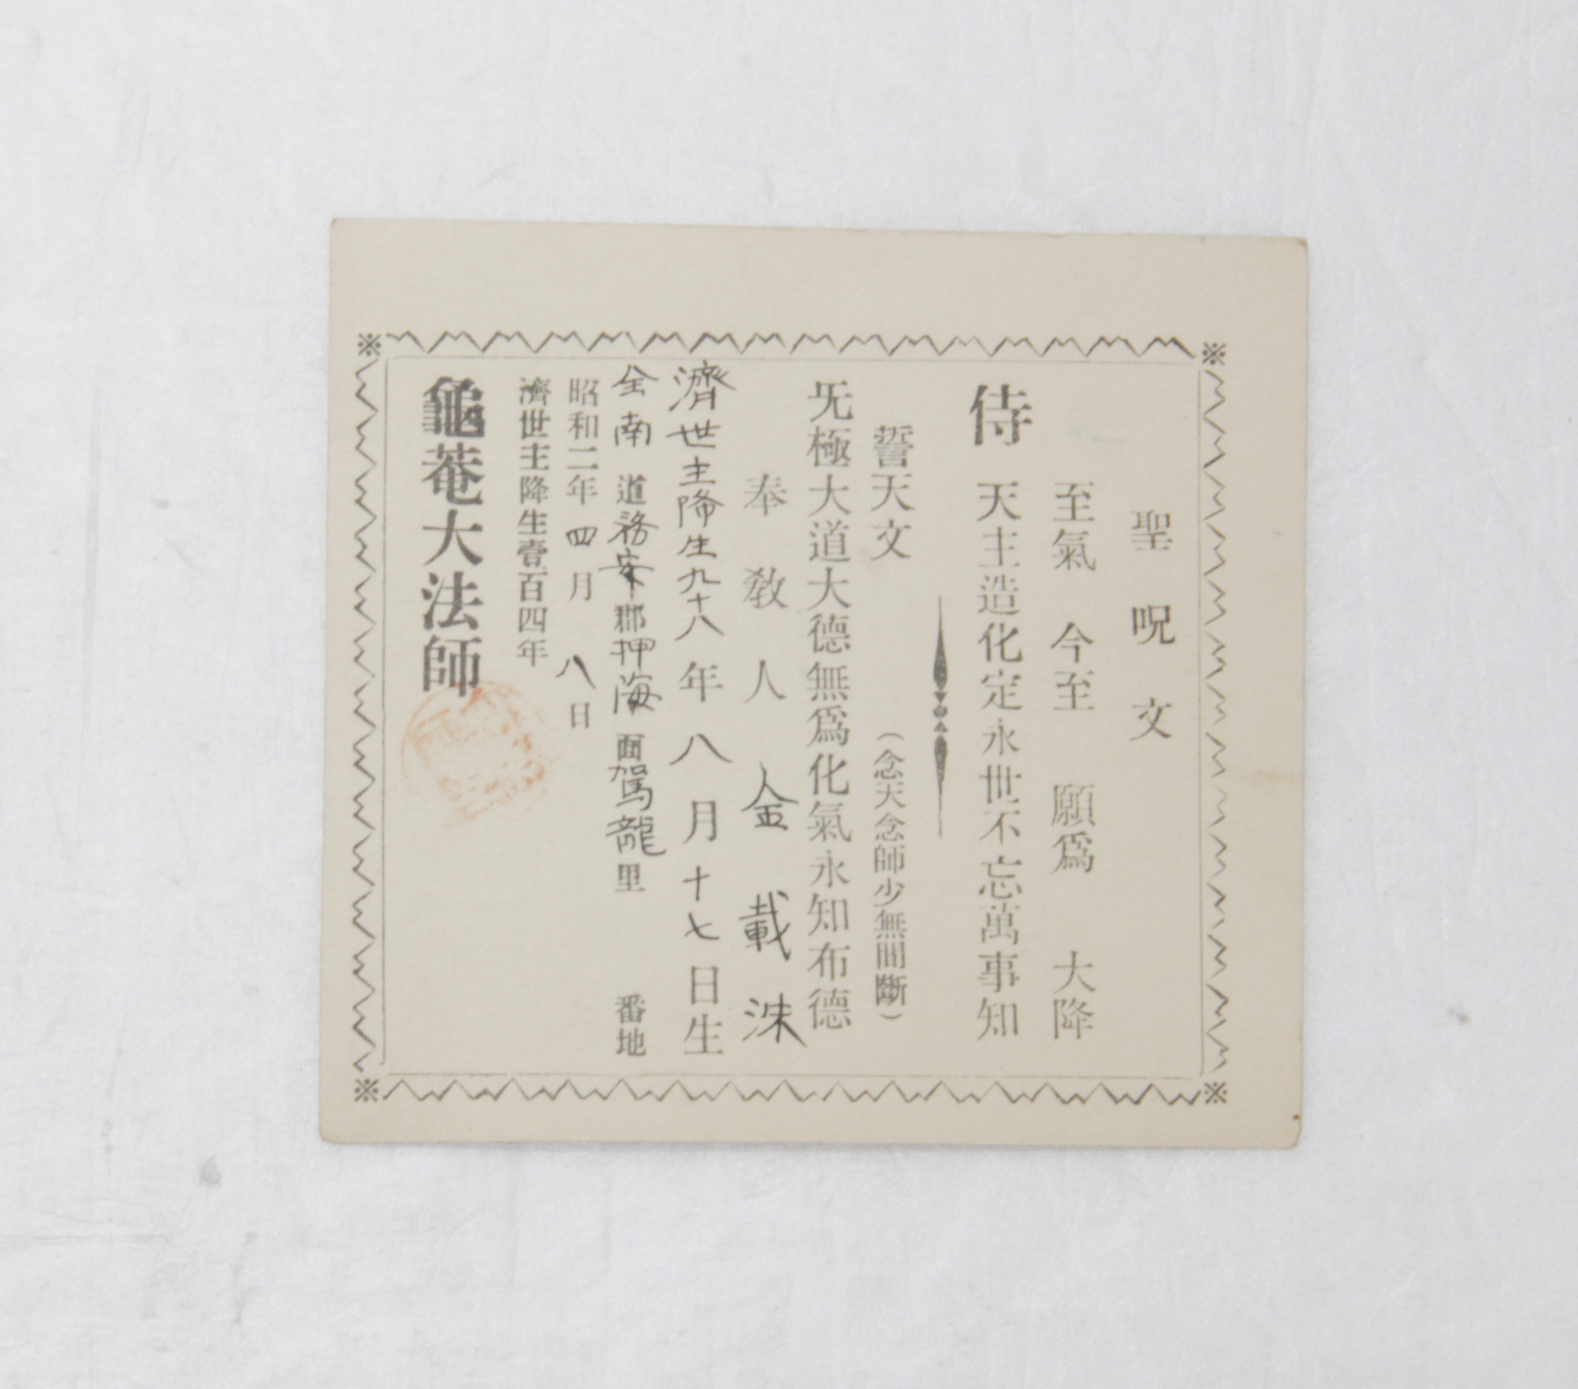 聖呪文
至氣 今至 願爲 大降
侍 天主造化定永世不忘萬事知
誓天文 (念天念師少無間斷)
旡極大道大德無爲化氣永知布德
奉敎人 金載洙
濟世主降生九十八年八月十七日生
全南道務安郡押海面駕龍里 番地
昭和二年四月八日
濟世主降生壹百四年
龜菴大法師